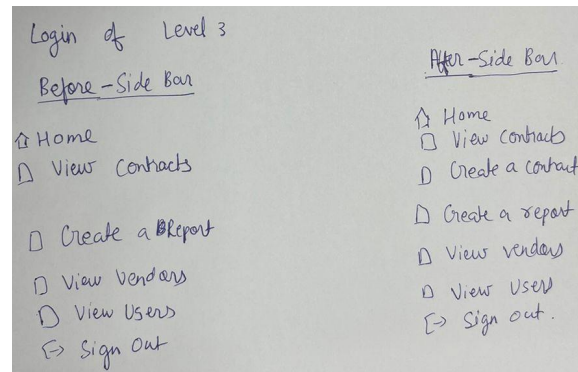 Login of Level 3
Before - Side Bar
Home
View Contracts
Create a Report
View Vendors
View Users
Sign Out
After - Side Bar
Home
View Contracts
Create a contract
Create a report
View vendors
View Users
Sign out.